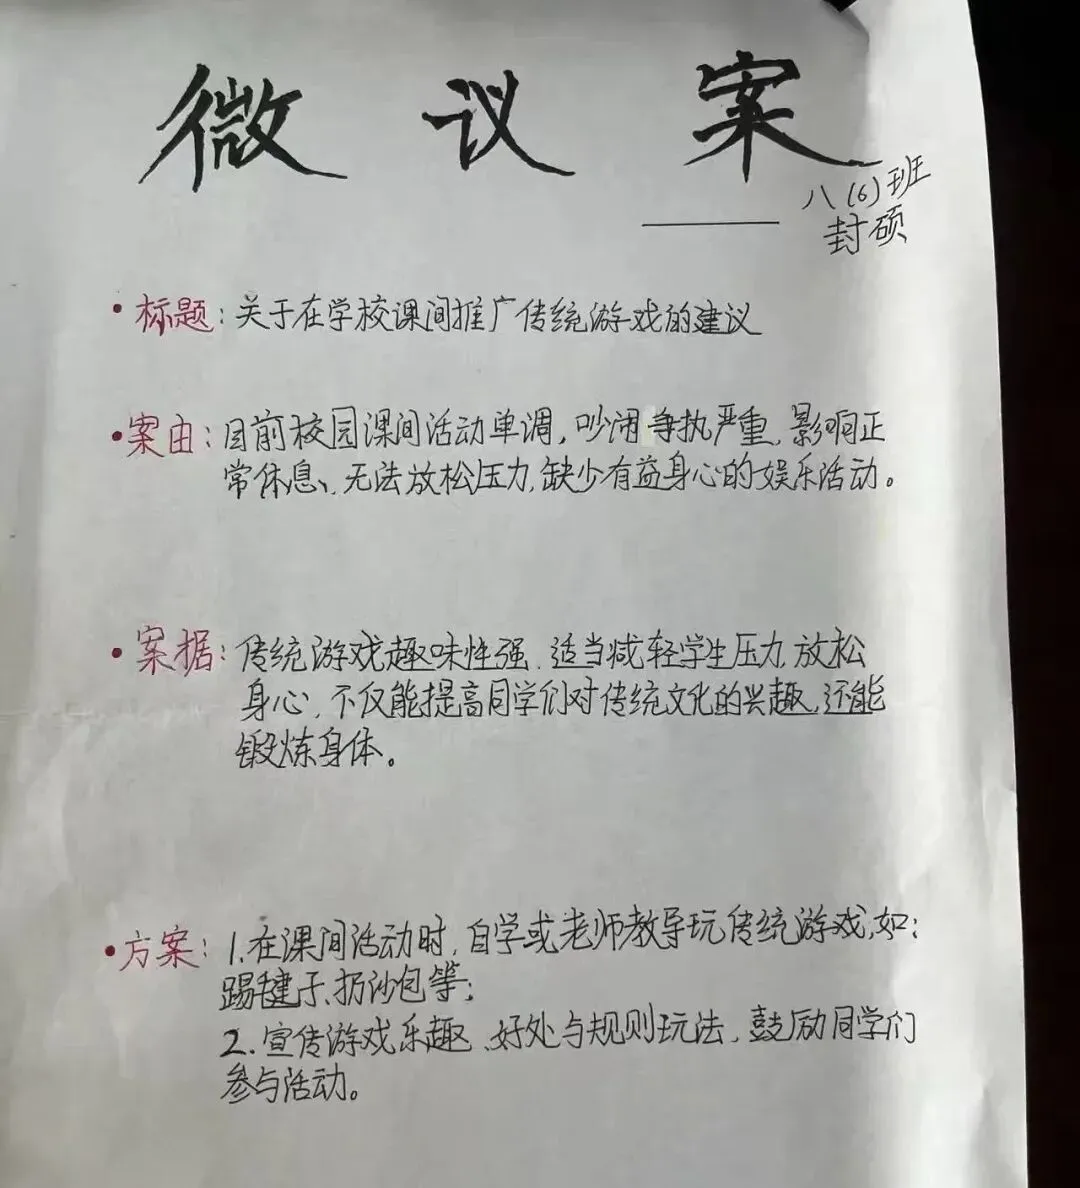 微议案
——八(6)班
封硕
·标题：关于在学校课间推广传统游戏的建议
·案由：目前校园课间活动单调，吵闹争执严重，影响正
常休息、无法放松压力，缺少有益身心的娱乐活动。
·案据：传统游戏趣味性强，适当减轻学生压力，放松
身心，不仅能提高同学们对传统文化的兴趣，还能
锻炼身体。
·方案：1.在课间活动时，自学或老师教导玩传统游戏，如：
踢毽子、扔沙包等；
2.宣传游戏乐趣、好处与规则玩法，鼓励同学们
参与活动。